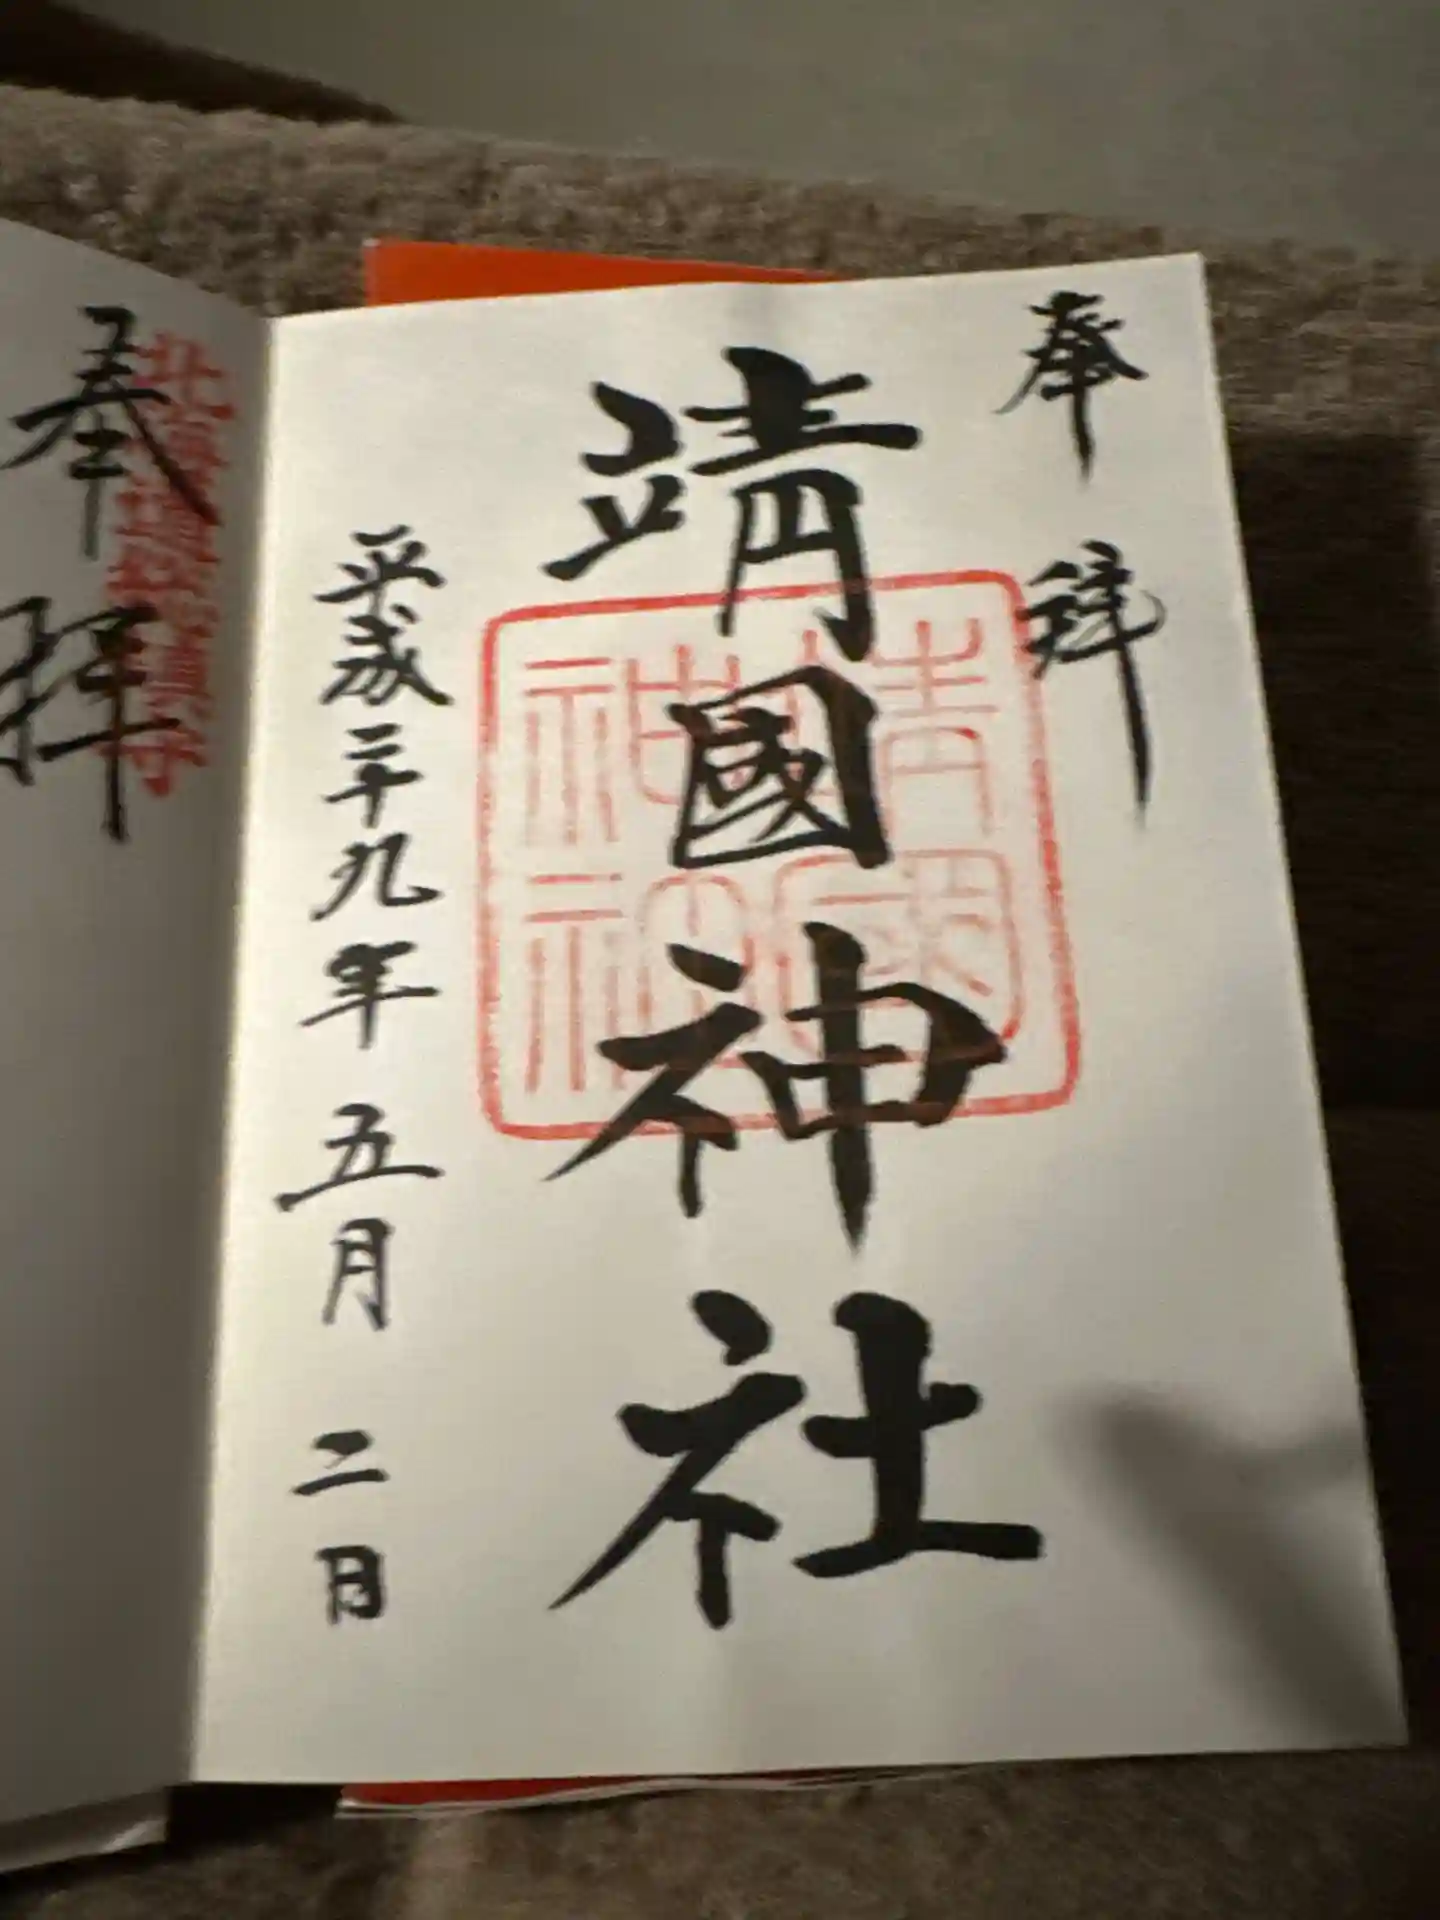 奉拝
靖國神社
靖國神社
平成二十九年五月二日
北海道
奉拝